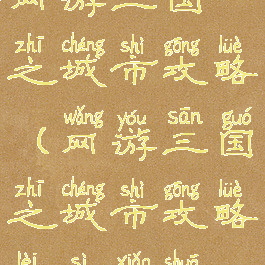 网游三国
zhī chéng shì gōng lüè
之城市攻略
wǎng yóu sān guó
(网游三国
zhī chéng shì gōng lüè
之城市攻略
lèi sì xiǎo shuō